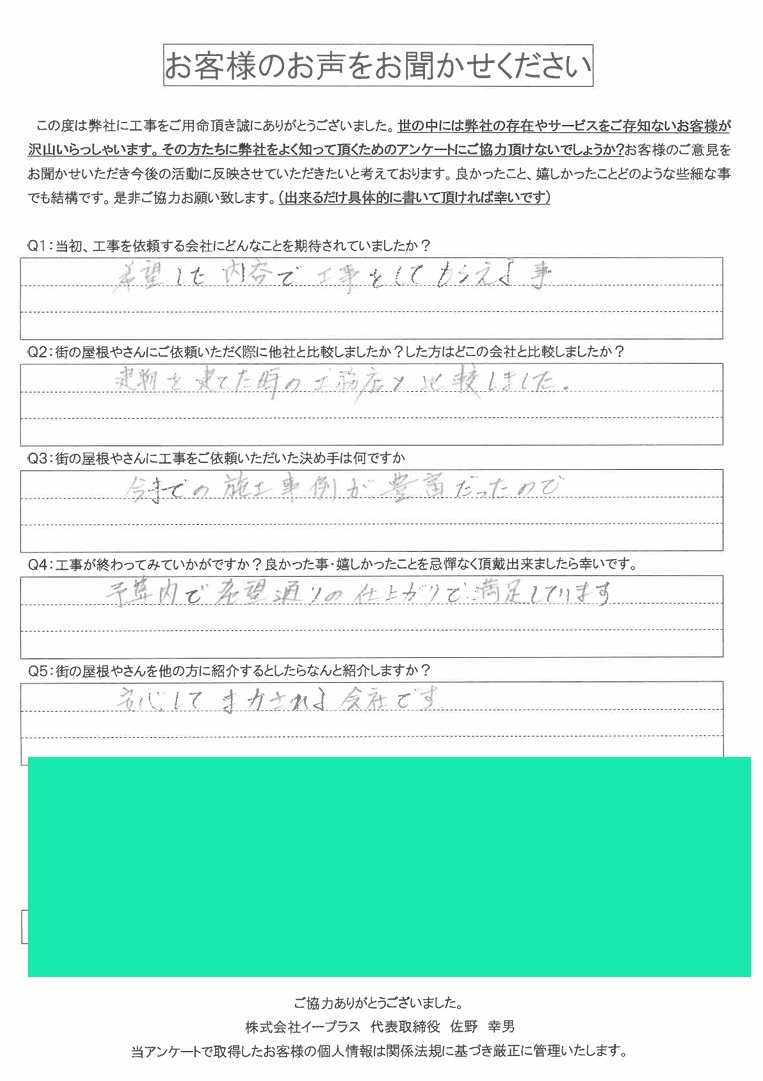 お客様のお声をお聞かせください
この度は弊社に工事をご用命頂き誠にありがとうございました。世の中には弊社の存在やサービスをご存知ないお客様が
沢山いらっしゃいます。その方たちに弊社をよく知って頂くためのアンケートにご協力頂けないでしょうか?お客様のご意見を
お聞かせいただき今後の活動に反映させていただきたいと考えております。良かったこと、嬉しかったことどのような些細な事
でも結構です。是非ご協力お願い致します。(出来るだけ具体的に書いて頂ければ幸いです)
Q1:当初、工事を依頼する会社にどんなことを期待されていましたか?
希望した内容で工事をしてもらえる事
Q2:街の屋根やさんにご依頼いただく際に他社と比較しましたか?した方はどこの会社と比較しましたか?
建物を建てた時の工務店と比較しました。
Q3:街の屋根やさんに工事をご依頼いただいた決め手は何ですか
今までの施工事例が豊富だったので
Q4:工事が終わってみていかがですか?良かった事・嬉しかったことを忌憚なく頂戴出来ましたら幸いです。
予算内で希望通りの仕上がりで満足しています
Q5:街の屋根やさんを他の方に紹介するとしたらなんと紹介しますか?
安心してまかされる会社です
ご協力ありがとうございました。
株式会社イープラス 代表取締役 佐野 幸男
当アンケートで取得したお客様の個人情報は関係法規に基づき厳正に管理いたします。